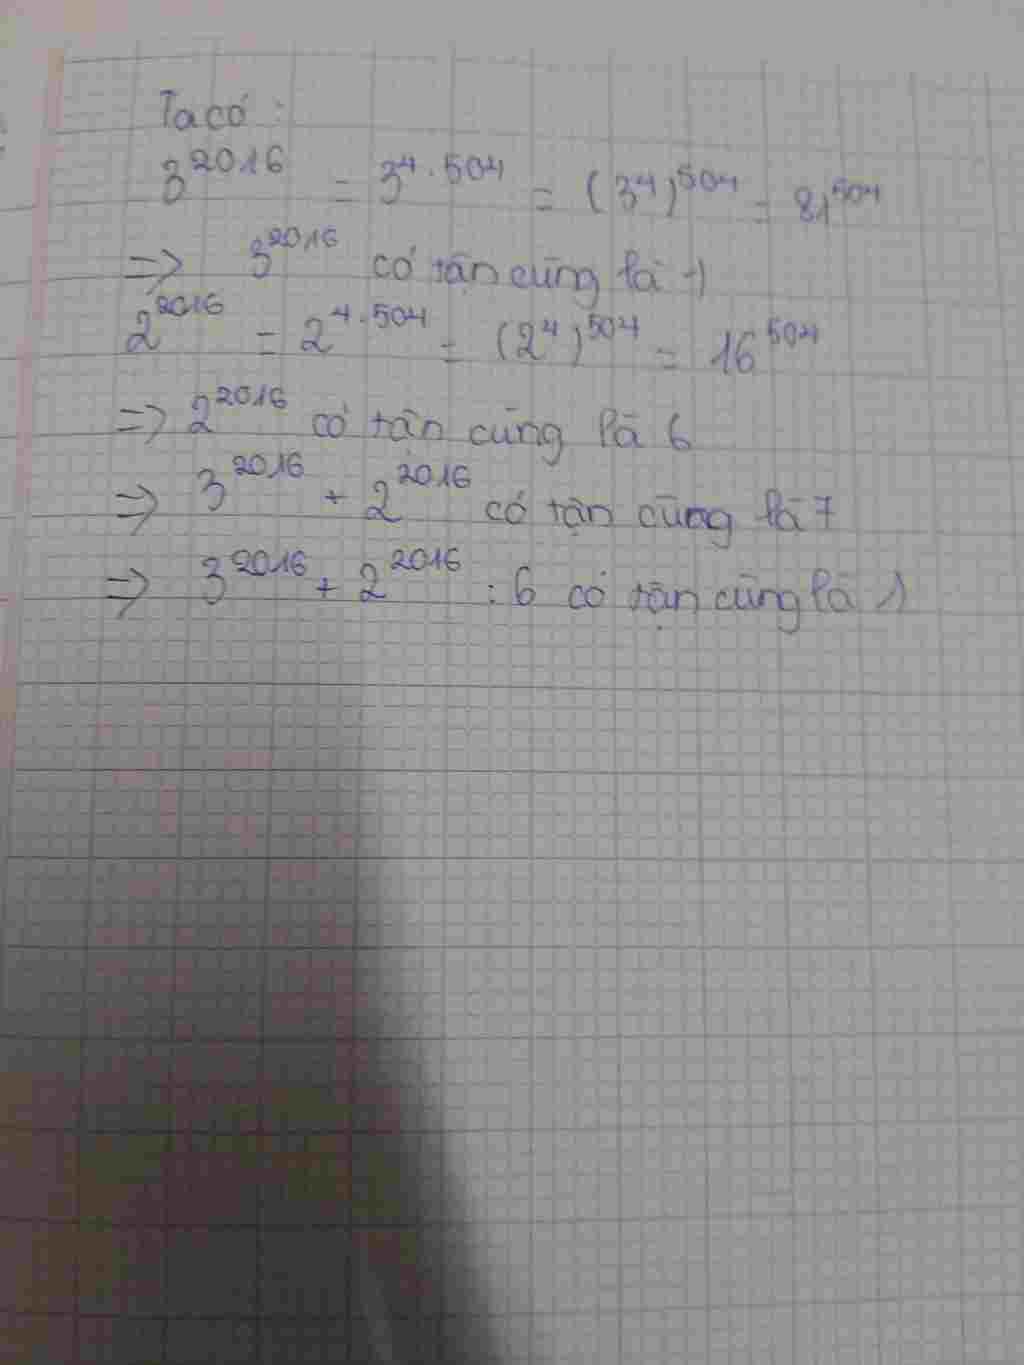 Ta có :
3^2016 = 3^4.504 = (3^4)^504 = 81^504
=> 3^2016 có tận cùng là 1
2^2016 = 2^4.504 = (2^4)^504 = 16^504
=> 2^2016 có tận cùng là 6
=> 3^2016 + 2^2016 có tận cùng là 7
=> 3^2016 + 2^2016 : 6 có tận cùng là 1